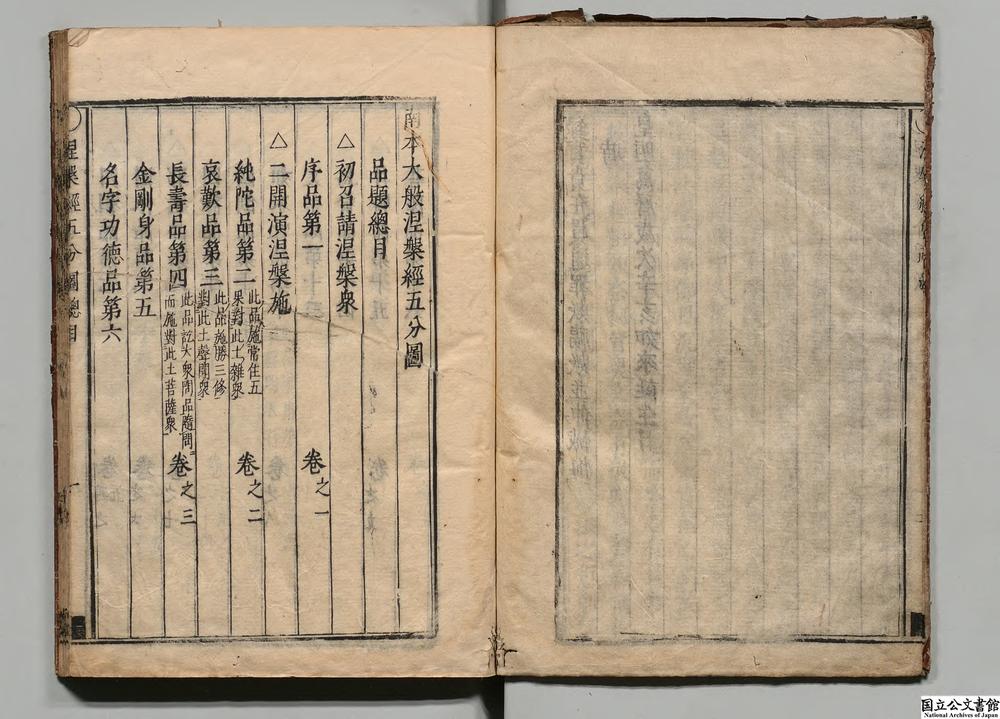 南本大般涅槃經五分圖
品題總目
△初召請涅槃衆
序品第一 卷之一
△二開演涅槃施
純陀品第二 此品施常住五果對此土雜衆 卷之二
哀歎品第三 此品施勝三修對此土聲聞衆
長壽品第四 此品訖大衆問品隨問而施對此土菩薩衆 卷之三
金剛身品第五
名字功德品第六
涅槃經五分圖總目
一
国立公文書館
National Archives of Japan